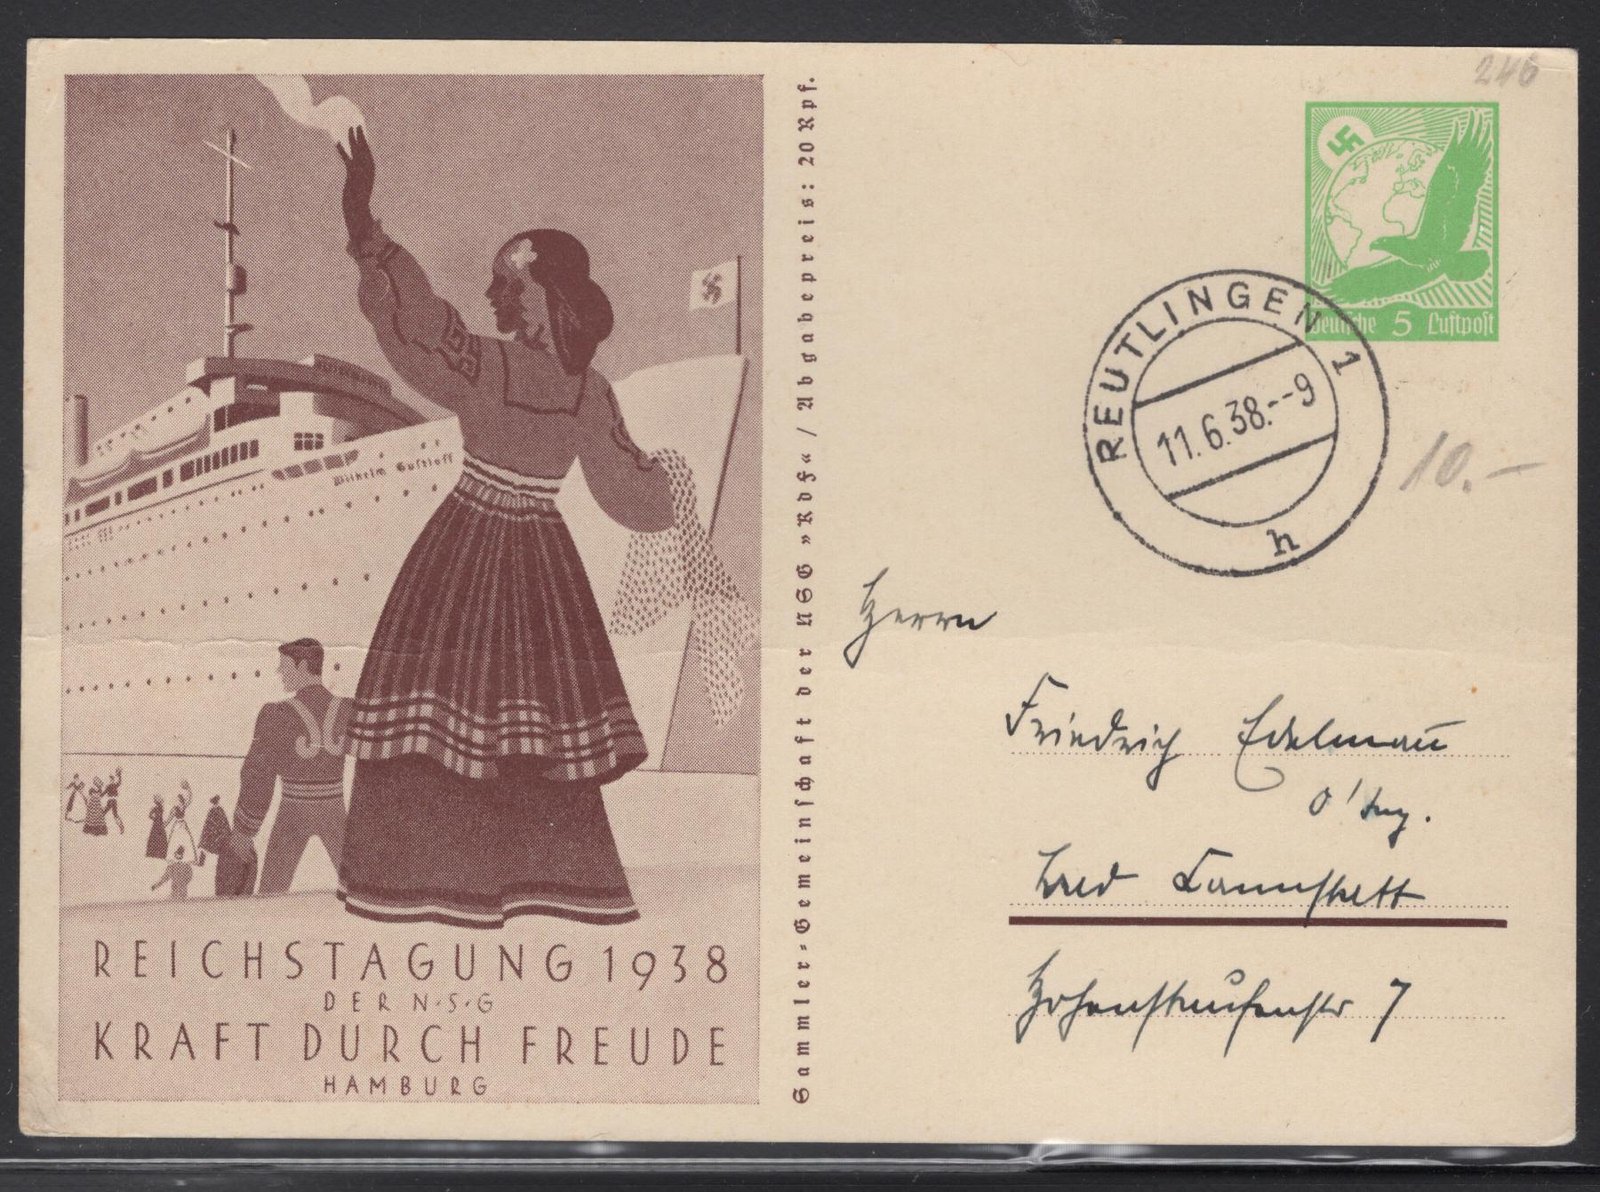 Wilhelm Gustloff
REICHSTAGUNG 1938
DER N·S·G
KRAFT DURCH FREUDE
HAMBURG
Sammler-Gemeinschaft der NSG »KdF« / Abgabepreis: 20 Rpf.
246
Deutsche 5 Luftpost
REUTLINGEN 1
11.6.38.--9
h
10.-
Herrn
Friedrich Edelmann
Bad Cannstatt
Hohenstaufenstr 7